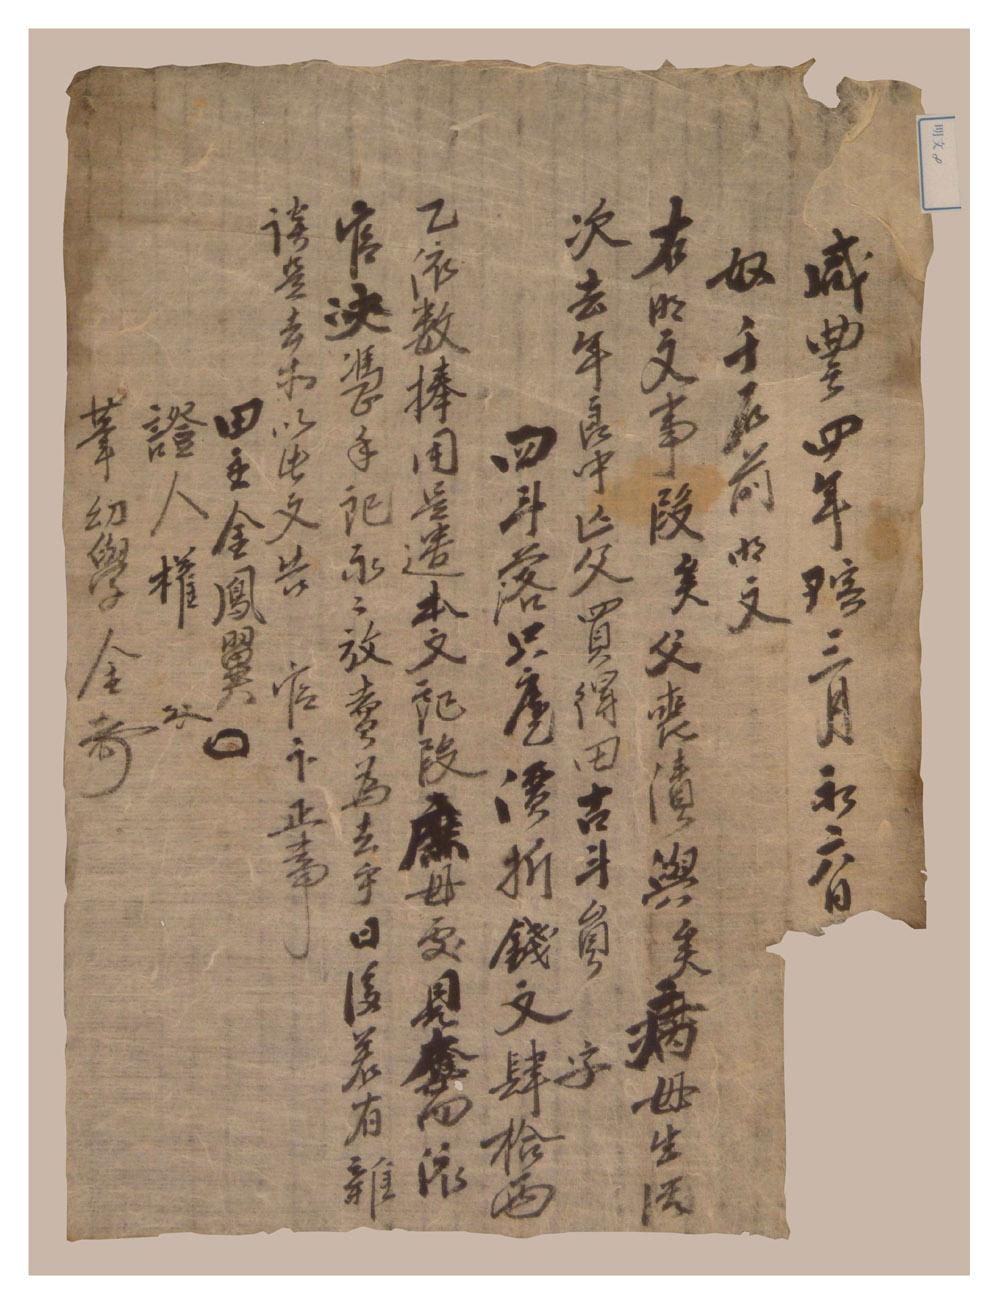 咸豐四年 三月初六日
奴千石前明文
右明文事段矣父喪債與矣病母生活
次去年良中亡父買得田古斗員 字
四斗落只庫價折錢文肆拾両
乙依數捧用是遣本文記段庶母處見奪而依
官決憑手記永永放賣為去乎日後若有雜
談是去等以此文告 官卞正事
田主金鳳翼
證人權
筆幼學金
明文 8